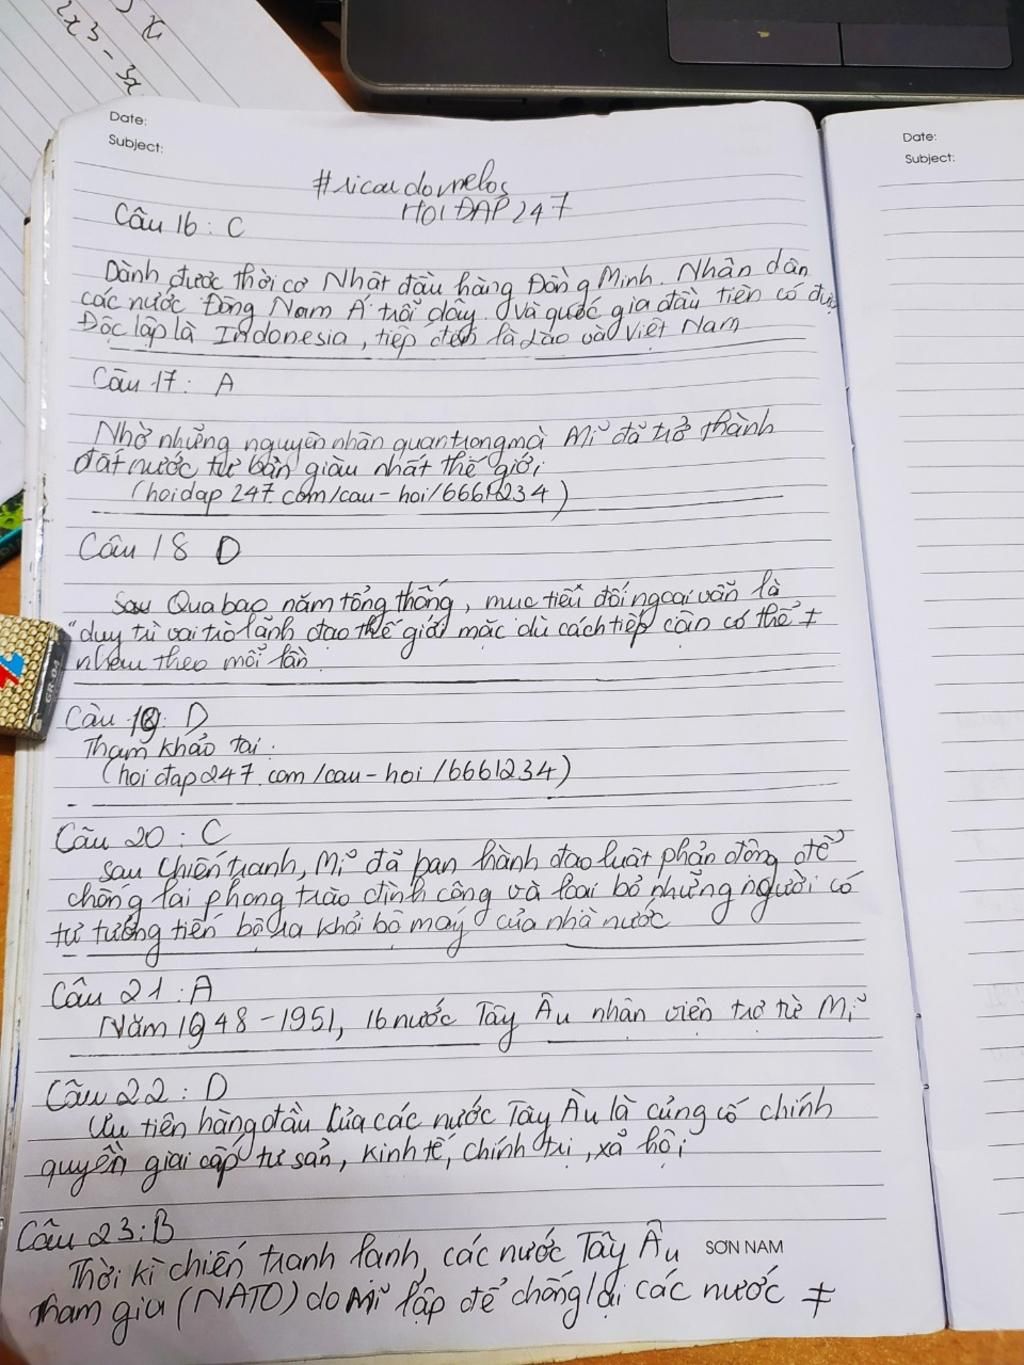 x
2x3 - 3x
Date:
Subject:
Date:
Subject:
#ricardomelos
HOIĐAP247
Câu 16 : C
Dành được thời cơ Nhật đầu hàng Đồng Minh. Nhân dân
các nước Đông Nam Á trỗi dậy. Và quốc gia đầu tiên có được
Độc lập là Indonesia, tiếp đến là Lào và Việt Nam
Câu 17 : A
Nhờ những nguyên nhân quan trọng mà Mĩ đã trở thành
đất nước tư bản giàu nhất thế giới
(hoidap 247.com/cau-hoi/6661234)
Câu 18 D
Qua bao năm tổng thống, mục tiêu đối ngoại vẫn là
"duy từ vai trò lãnh đạo thế giới mặc dù cách tiếp cận có thể ≠
nhau theo mỗi lần
GR-04
Câu 19: D
Tham khảo tại :
(hoi đap247.com/cau-hoi/6661234)
Câu 20 : C
Sau chiến tranh, Mĩ đã ban hành đạo luật phản động để
chống lại phong trào đình công và loại bỏ những người có
tư tưởng tiến bộ ra khỏi bộ máy của nhà nước
Câu 21 : A
Năm 1948 - 1951, 16 nước Tây Âu nhận viện trợ từ Mĩ
Câu 22 : D
Ưu tiên hàng đầu của các nước Tây Âu là củng cố chính
quyền giai cấp tư sản, kinh tế, chính trị, xã hội
Câu 23 : B
Thời kì chiến tranh lạnh, các nước Tây Âu
SƠN NAM
tham gia (NATO) do Mĩ lập để chống lại các nước ≠